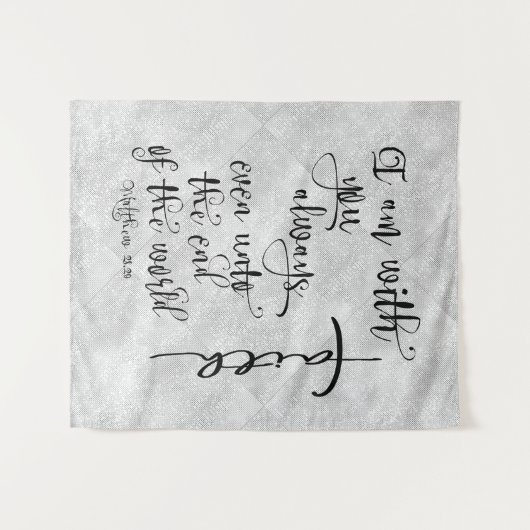 I am with
you
always
even unto
the end
of the world
Matthew 28:20
faith